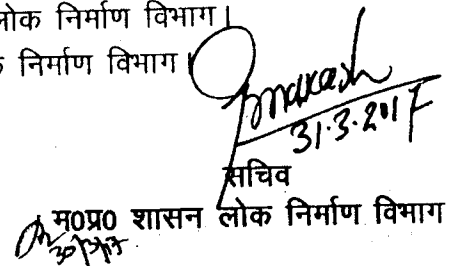 लोक निर्माण विभाग।
निर्माण विभाग
31.3.2017
सचिव
म0प्र0 शासन लोक निर्माण विभाग